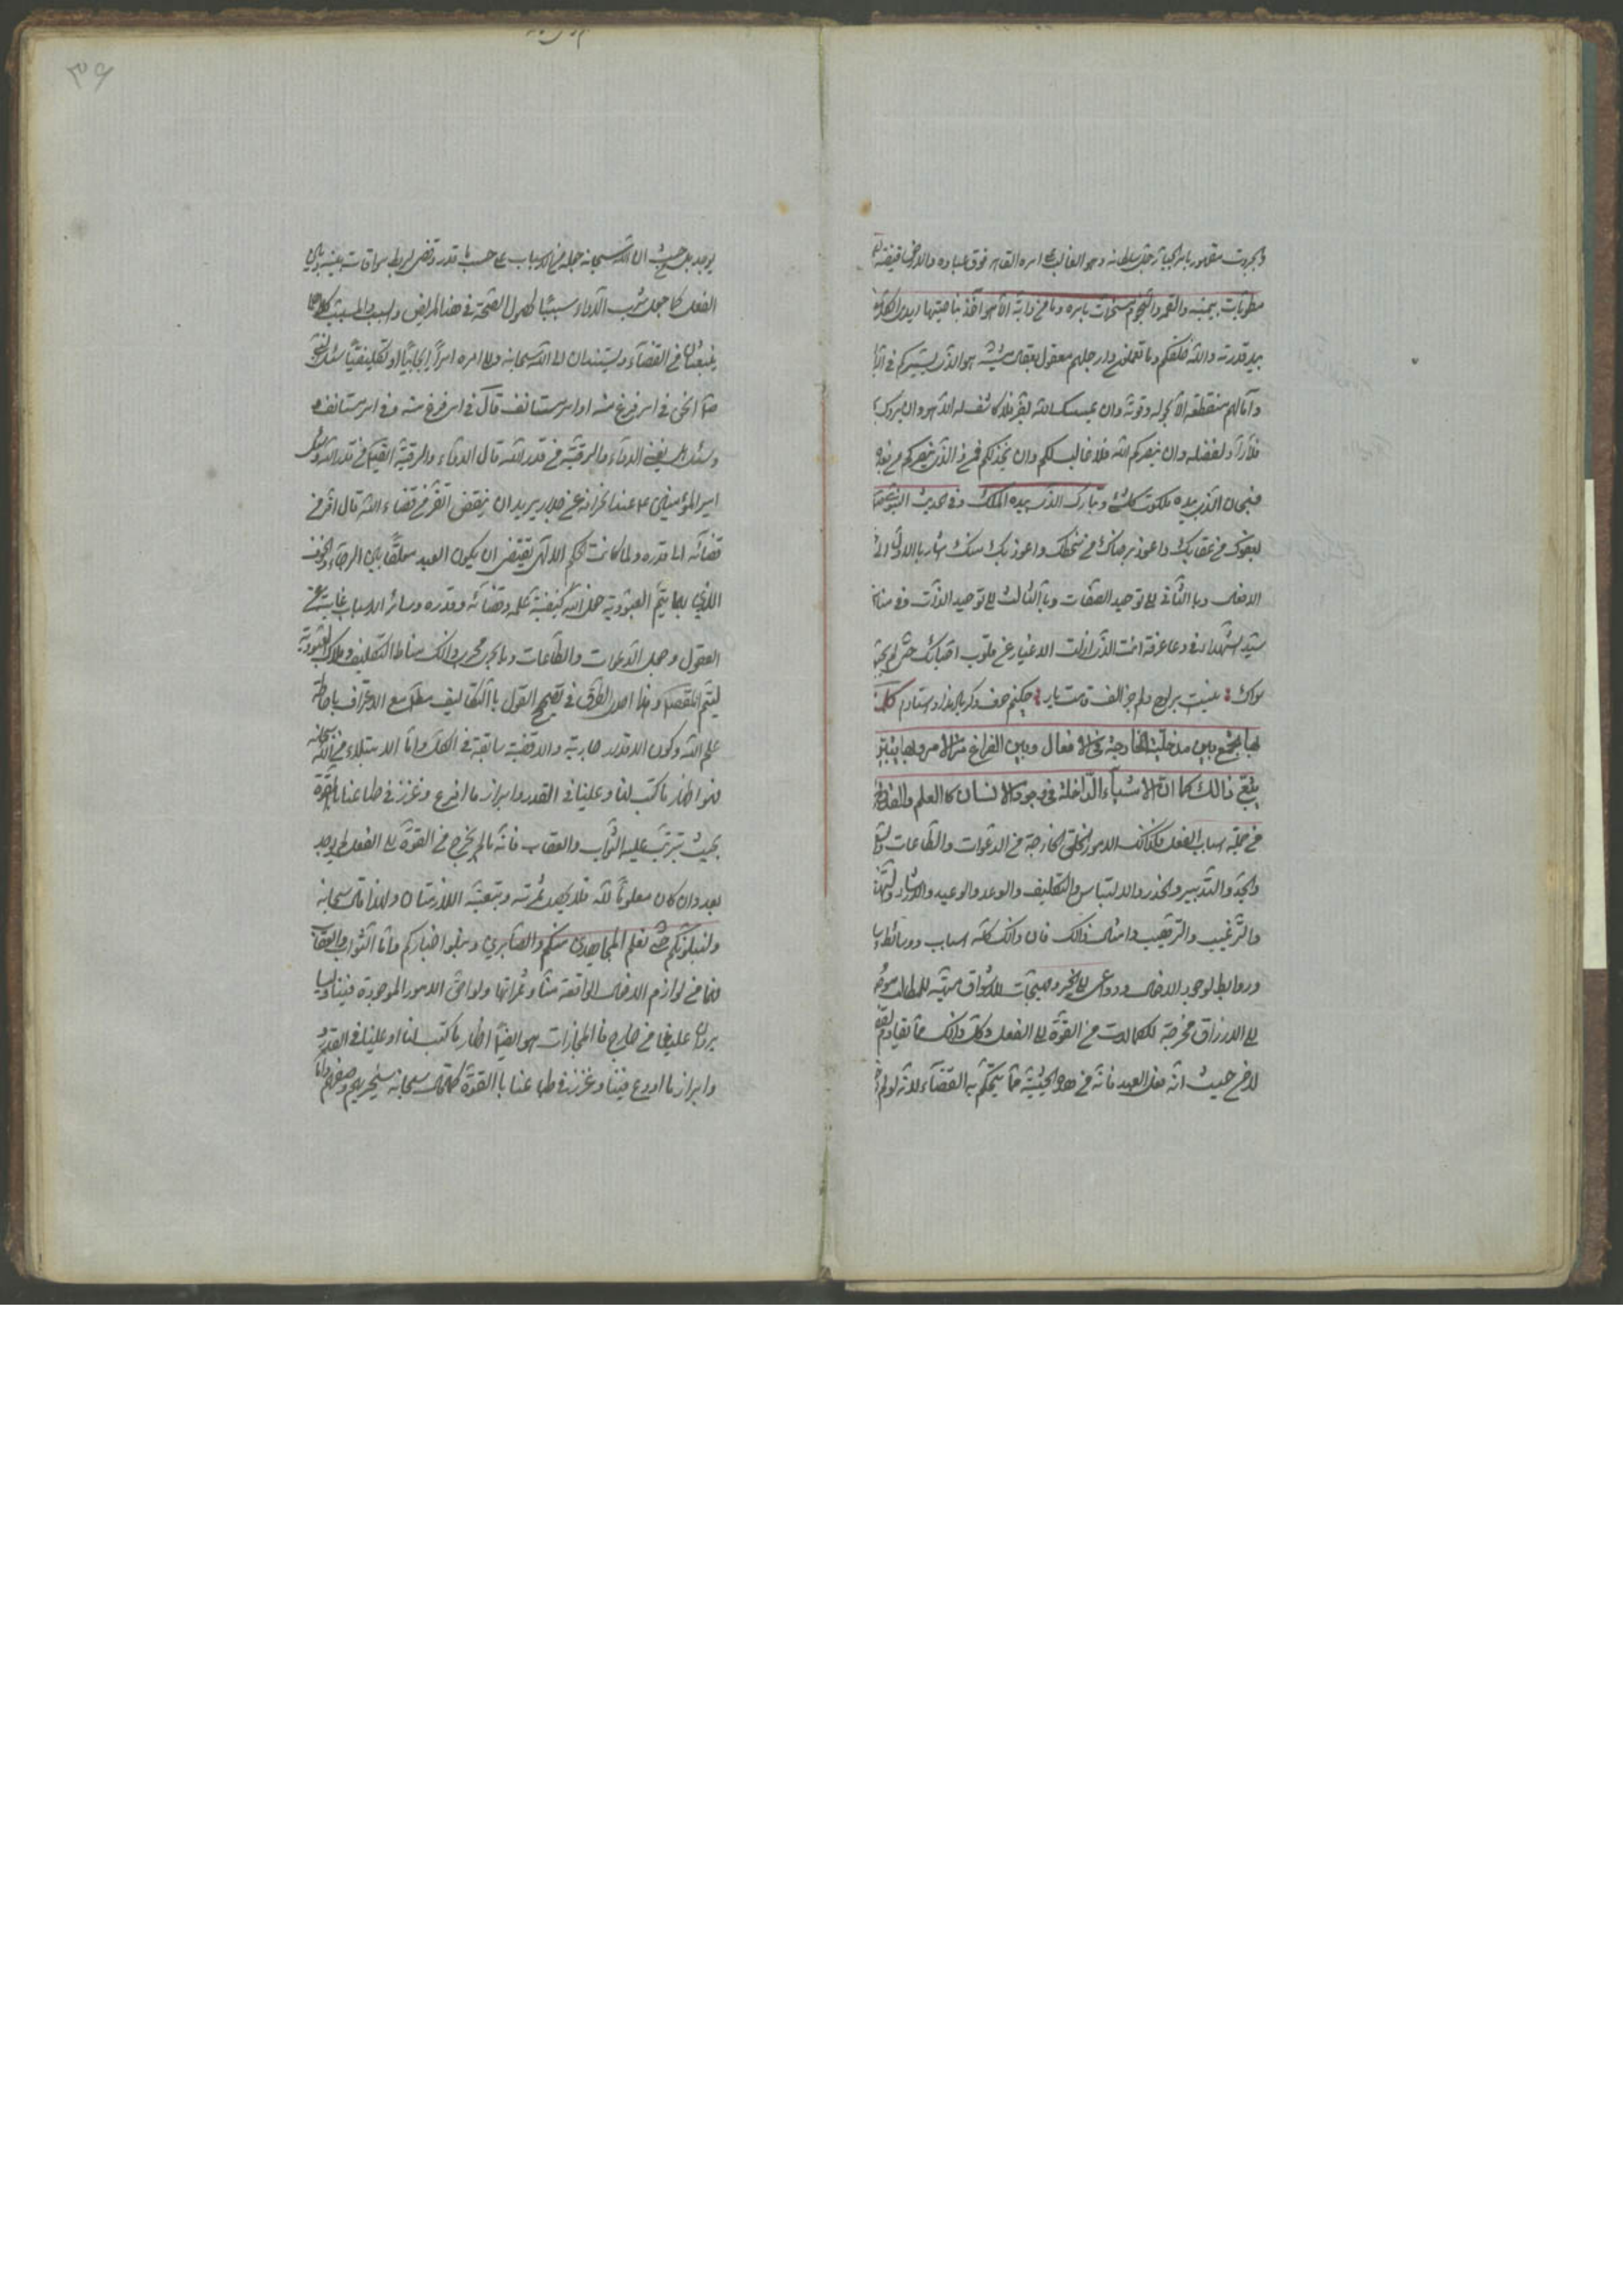 والجبروت مقهور بامر الجبار جل سلطانه وهو الغالب على امره القاهر فوق عباده والارض قبضته
مطويات بيمينه والقمر والنجوم مسخرات بامره وما من دابة الا هو آخذ بناصيتها ايدى
بيد قدرته والله خلقكم وما تعملون وارجلهم معقول بعقال مشيته هو الذى يسيركم فى البر
وآمالهم منقطعة الا بحوله وقوته وان يمسسك الله بضر فلا كاشف له الا هو وان يردك
فلا رادّ لفضله وان ينصركم الله فلا غالب لكم وان يخذلكم فمن ذا الذى ينصركم من بعده
فسبحان الذى بيده ملكوت كل شئ وتبارك الذى بيده الملك وفى الحديث النبوى
بعفوك من عقابك واعوذ برضاك من سخطك واعوذ بك منك اشار بالاول الى
الافعال وبالثانى الى توحيد الصفات وبالثالث الى توحيد الذات وفى
سيد الشهداء فى دعا عرفة انت الذى ازلت الاغيار عن قلوب احبائك حتى لم يحبوا
سواك نيست بر لوح دلم جز الف قامت يار چكنم حرف دگر ياد نداد استادم
بها يجمع بين مدخلية الخارجية فى الافعال وبين الفراغ من الامر وبها
ذالك كما ان الاشياء الداخلة فى وجود الانسان كالعلم والقدرة
من جملة اسباب الفعل فكذلك الامور الخارجة من الدعوات والطاعات
والجد والتدبير والحذر والالتباس والتكليف والوعد والوعيد والارشاد
والترغيب والترهيب وامثال ذالك فان ذالك كله اسباب ووسائط
وروابط لوجود الافعال ودواعى الى الخير ومهيجات للاشواق مهيئة للمطالب
الى الارزاق مخرجة للكمالات من القوة الى الفعل وكل ذالك مما يقاوم
لا من حيث انه فعل العبد فانه من هذه الحيثية مما يتحكم به القضاء لانه لولم
يوجد بل من حيث ان الله سبحانه جعله من الاسباب على حسب ما قدر وقضى لربط موافاة بينه وبين
الفعل كما جعل شرب الدواء سببا لحصول الصحة فى هذا المريض والسبب والمسبب كلاهما
ينبعثان من القضاء ويستندان الى الله سبحانه والى امره امرا ايجابيا او تكليفيا سئل النبى
انحن فى امر فرغ منه او امر مستأنف قال فى امر فرغ منه وفى امر مستأنف
وسئل الدواء والرقية من قدر الله قال الدواء والرقية ايضا من قدر الله وسئل
امير المؤمنين ع عند انحرافه عن جدار يريد ان ينقض اتفر من قضاء الله قال افر من
قضائه الى قدره ولما كانت الحكم الالهى يقتضى ان يكون العبد معلقا بين الرجاء والخوف
اللذين بهما يتم العبودية جعل الله كيفية علمه وقضائه وقدره وسائر الاسباب غايبة عن
العقول وجعل الدعوات والطاعات وما يجرى مجرى ذالك مناط التكليف وملاك العبودية
ليتم المقصد وهذا احد الطرق فى تصحيح القول بالتكاليف مطلقا مع الاعتراف باحاطة
علم الله وكون الاقدار جارية والاقضية سابقة فى الكل واما الابتلاء من الله سبحانه
فهو اظهار ما كتب لنا وعلينا فى القدر وابراز ما اودع وغرز فى طباعنا بالقوة
بحيث يترتب عليه الثواب والعقاب فانه ما لم يخرج من القوة الى الفعل لم يوجد
بعد وان كان معلوما لله فلا يحصل ثمرته وتبعته اللازمتان ولهذا قال سبحانه
ولنبلونكم حتى نعلم المجاهدين منكم والصابرين ونبلوا اخباركم واما الثواب والعقاب
فهما من لوازم الافعال الواقعة منا وثمراتها ولواحق الامور الموجودة فينا
يردان علينا من خارج فالمجازات هو ايضا اظهار ما كتب لنا او علينا فى القدر
وابراز ما اودع فينا وغرز فى طباعنا بالقوة كما قال سبحانه سيجزيهم وصفهم